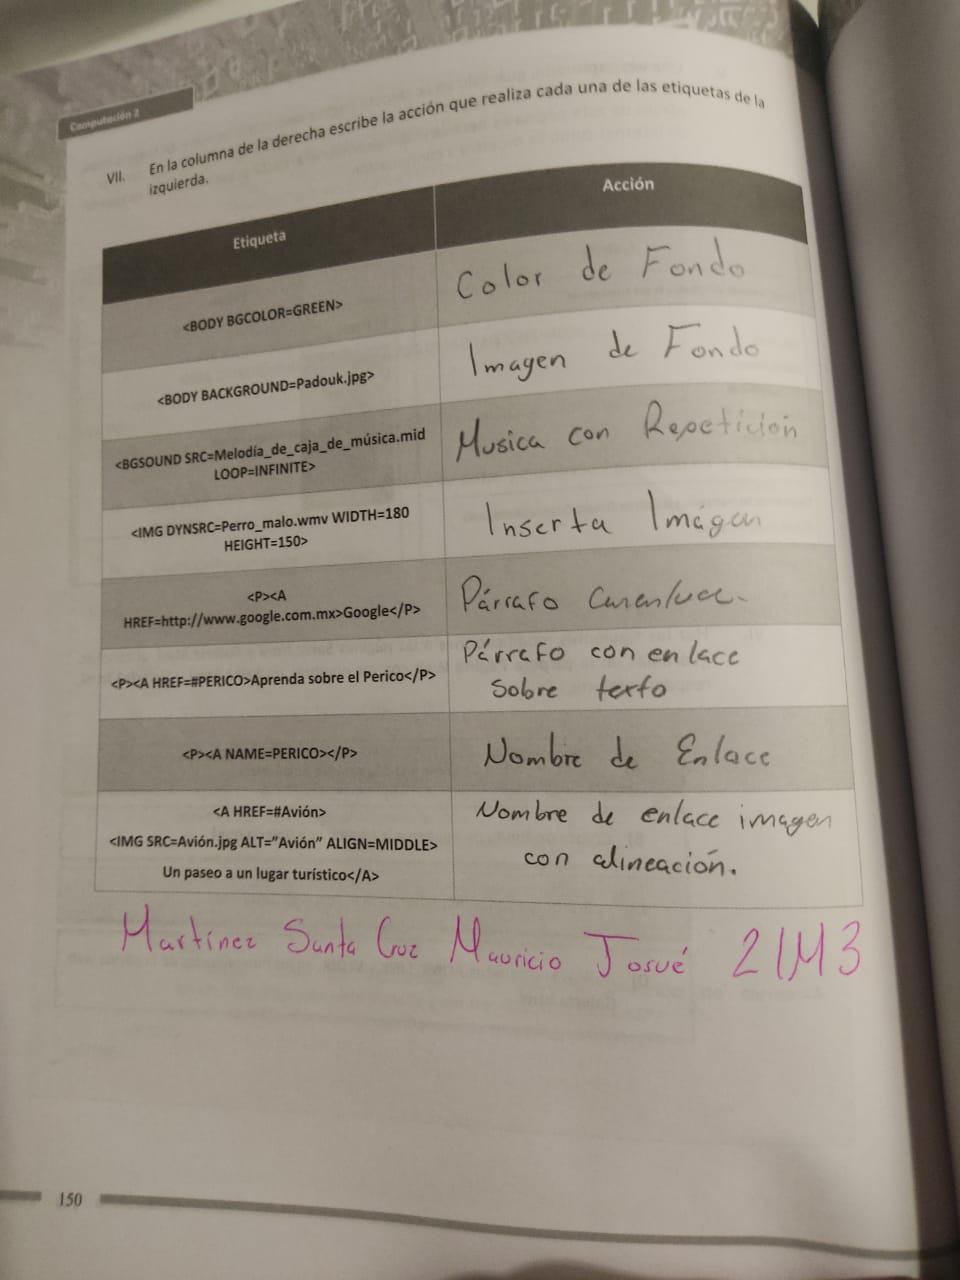 Computación 2
VII. En la columna de la derecha escribe la acción que realiza cada una de las etiquetas de la
izquierda.
Etiqueta
Acción
<BODY BGCOLOR=GREEN>
Color de Fondo
<BODY BACKGROUND=Padouk.jpg>
Imagen de Fondo
<BGSOUND SRC=Melodía_de_caja_de_música.mid
LOOP=INFINITE>
Musica con Repetición
<IMG DYNSRC=Perro_malo.wmv WIDTH=180
HEIGHT=150>
Inserta Imágen
<P><A
HREF=http://www.google.com.mx>Google</P>
Párrafo
<P><A HREF=#PERICO>Aprenda sobre el Perico</P>
Párrafo con enlace
sobre texto
<P><A NAME=PERICO></P>
Nombre de Enlace
<A HREF=#Avión>
<IMG SRC=Avión.jpg ALT="Avión" ALIGN=MIDDLE>
Un paseo a un lugar turístico</A>
Nombre de enlace imagen
con alineación.
Martínez Santa Cruz Mauricio Josué 21M3
150